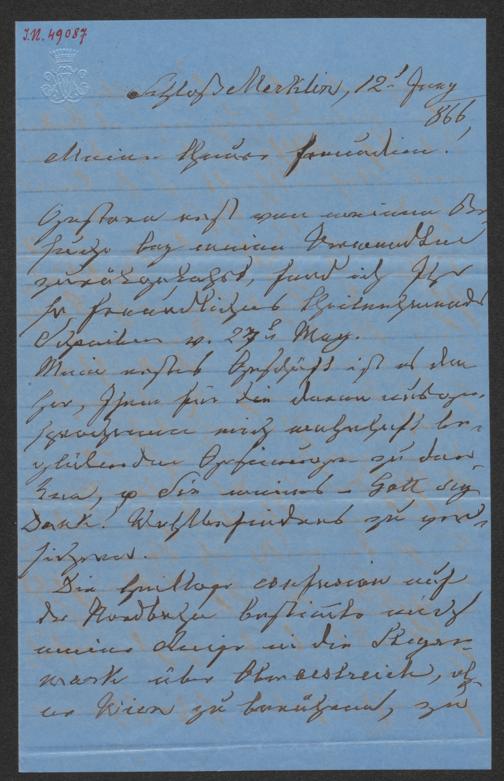 I.N. 49087
Schloß Merklin, 12t Juny
866,
Meine theuere Freundin!
Gestern erst von meinem Be-
suche bey meinen Verwandten
zurükgekehrt, fand ich Ihr
so freundliches theilnehmendes
Schreiben v. 27t May.
Mein erstes Geschäft ist es da
her, Ihnen für die darin ausge-
sprochenen mich wahrhaft be-
glükenden Gesinnungen zu dan-
ken, & Sie meines – Gott sey
Dank! Wohlbefindens zu ver-
sichern.
Die heillose confusion auf
der Nordbahn bestimte mich
meine Reise in die Steyer-
mark über Oberoestreich, oh-
ne Wien zu berühren, zu